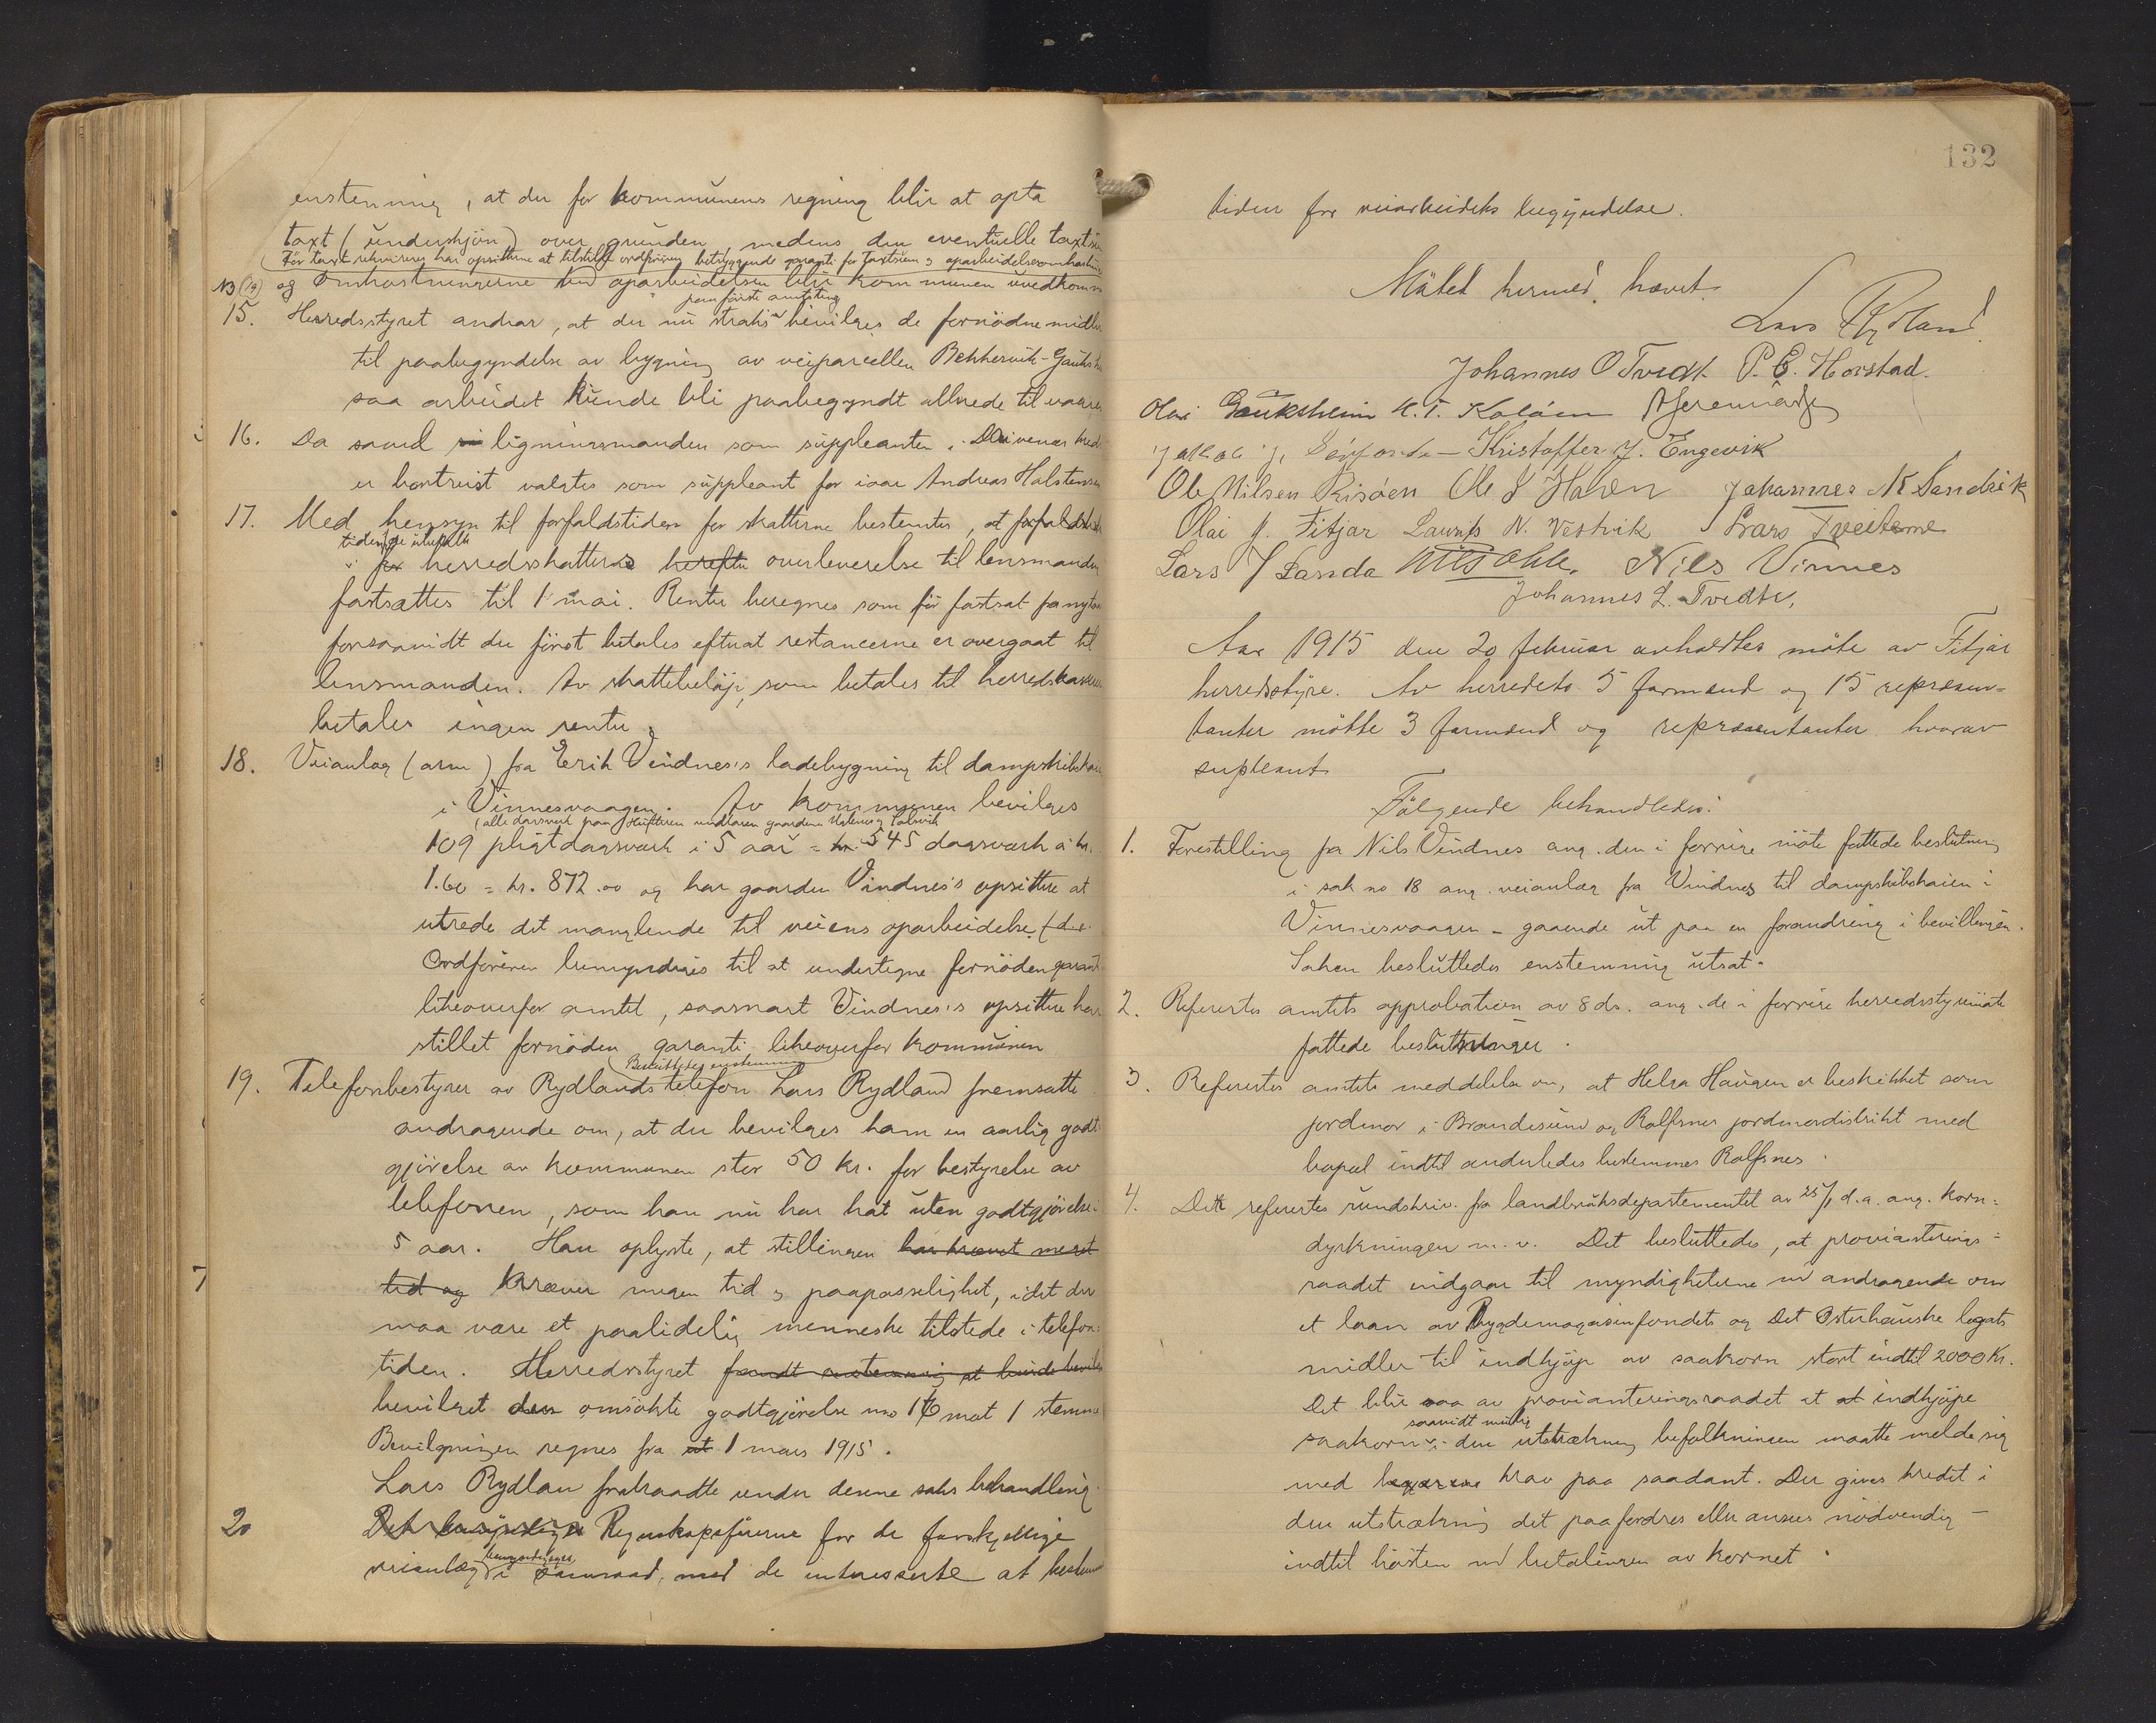 enstemmig, at der for kommunens regning blir at opta
taxt (underskjøn) over grunden, medens den eventuelle taxtsum
Før taxt rekvireres har opsitterne at tilstille ordføreren betryggende garanti for taxtsum og oparbeidelsesomkostninger
NB (14) og omkostningerne ved oparbeidelsen blir kommunen uvedkomm
paa første amtsting
15. Herredsstyret andrar, at der nu straks bevilges de fornødne midler
til paabegyndelse av bygning av veiparcellen Bekkervik-Gauks
saa arbeidet kunde bli paabegyndt allerede til vaaren
16. Da saavel ligningsmanden som suppleanten i Drivenes kreds
er bortreist valgtes som suppleant for iaar Andreas Halstensen
17. Med hensyn til forfaldstiden for skatterne bestemtes, at forfalds
tiden
i for herredsskatterne herefter overleverelse til lensmanden
fastsættes til 1 mai. Renter beregnes som før fastsat fra nytaar
forsaavidt der først betales efterat restancerne er overgaat til
lensmanden. Av skattebeløp, som betales til herredskassen
betales ingen renter.
18. Veianlæg (arm) fra Erik Vindnes's ladebygning til dampskibskai
i Vinnesvaagen. Av kommunen bevilges
(alle dagsverk paa Huftren undtagen gaarden
109 pligtdagsverk i 5 aar = kr. 545 dagsverk a kr.
1.60 = kr. 872.00 og har gaarden Vindnes's opsittere at
utrede det manglende til veiens oparbeidelse.
Ordføreren bemyndiges til at undertegne fornøden garanti
likeoverfor amtet, saasnart Vindnes's opsittere har
stillet fornøden garanti likeoverfor kommunen
Besluttedes enstemmig
19. Telefonbestyrer av Rydlands telefon Lars Rydland fremsatte
andragende om, at der bevilges ham en aarlig godt
gjørelse av kommunen stor 50 kr. for bestyrelse av
telefonen, som han nu har hat uten godtgjørelse i
5 aar. Han oplyste, at stillingen har krævet meget
tid og kræver megen tid og paapasselighet, idet der
maa være et paalidelig menneske tilstede i telefon-
tiden. Herredsstyret fandt enstemmig at burde bevilge
bevilget den omsøkte godtgjørelse mot 1 stemme
Bevilgningen regnes fra at 1 mars 1915.
Lars Rydlan fratraadte under denne saks behandling.
20 Regnskapsførerne for de forskjellige
bemyndiges
veianlæg i samraad med de interesserte at bestemme
132
tiden for veiarbeidets begyndelse.
Møtet hermed hævet.
Lars Rydland
Johannes O Tvedt. P. E. Horstad.
Olai Gauksheim K. T. Koløen
Kristoffer J. Engevik
Ole Nilsen Risøen Ole J Haven Johannes N Sandvik
Olai J. Fitjar Laurits N. Vestvik Lars Tveiterne
Lars J Landa Nils Vinnes
Johannes L. Tvedte,
Aar 1915 den 20 februar avholdtes møte av Fitjar
herredsstyre. Av herredets 5 formænd og 15 repræsen-
tanter møtte 3 formænd og repræsentanter hvorav
supleant
Følgende behandledes:
1. Forestilling fra Nils Vindnes ang. den i forrige møte fattede beslutning
i sak no 18 ang. veianlæg fra Vindnes til dampskibskaien i
Vinnesvaagen - gaaende ut paa en forandring i bevillingen.
Saken besluttedes enstemmig utsat.
2. Refertes amtets approbation av 8 ds. ang. de i forrige herredsstyremøte
fattede beslutninger.
3. Refertes amtets meddelelse om, at Helga Haugen er beskikket som
jordmor i Brandesund og Rolfsnes jordmordistrikt med
bopæl indtil anderledes bestemmes Rolfsnes.
4. Der refertes rundskriv. fra landbruksdepartementet av 25/1 d.a. ang. korn-
dyrkningen m. v. Det besluttedes, at provianterings-
raadet indgaar til myndigheterne med andragende om
et laan av Bygdemagasinfondets og Det Osterhauske legats
midler til indkjøp av saakorn stort indtil 2000 Kr.
Det blir saa av provianteringsraadet at indkjøpe
saavidt mulig
saakorn i den utstrækning befolkningen maatte melde sig
med krav paa saadant. Der gives kredit i
den utstrækning det paafordres eller ansees nødvendig -
indtil høsten med betalingen av kornet.